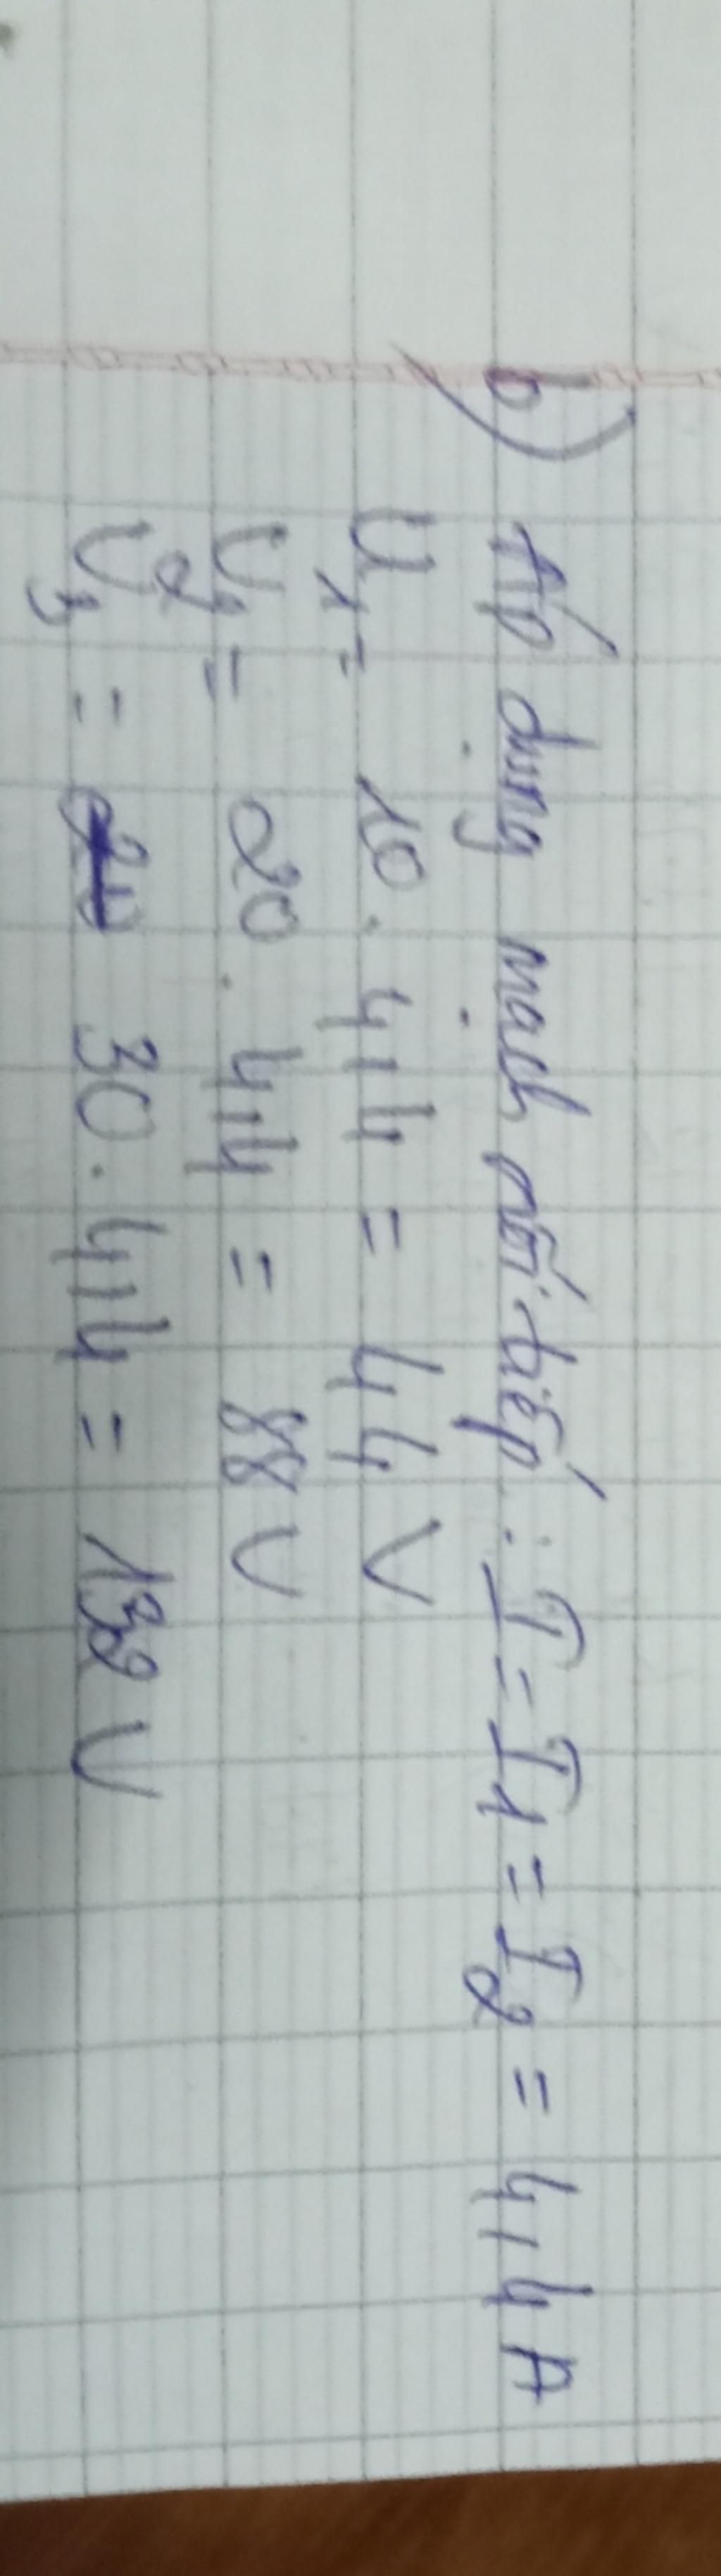 b) Áp dụng mạch nối tiếp : I = I1 = I2 = 4,4 A
U1 = 10 . 4,4 = 44 V
U2 = 20 . 4,4 = 88 V
U3 = 30 . 4,4 = 132 V